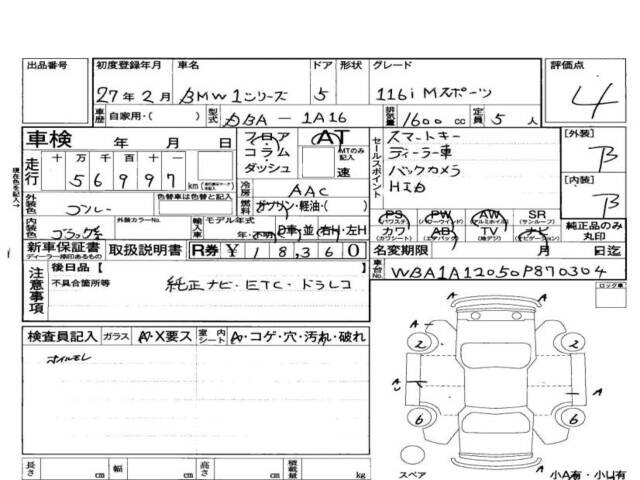 出品番号 初度登録年月 車名 ドア 形状 グレード 評価点
27年2月 BMW1シリーズ 5 116i Mスポーツ 4
車歴 自家用・( ) 型式 DBA-1A16 排気量 1600 cc 定員 5 人
車検 年 月 日 フロア AT スマートキー [外装]
コラム・ MTのみ記入 セールスポイント ディーラー車 B
走行 十 万 千 百 十 一 ダッシュ 速 バックカメラ
5 6 9 9 7 km HID [内装]
冷房 AAC B
外装色 色替車は色替と記入 燃料 ガソリン・軽油・( )
現在色を記入→
PS PW AW SR 純正品のみ丸印
(パワステ) (パワーウインド) (アルミホイル) (サンルーフ)
内装色 ブラック 外装カラーNo. 輸入車 モデル年式 カワ AB TV ナビ
年・不明 D車・並 右H・左H (カワシート) (エアバック) (地デジ) (ナビゲーション)
新車保証書 取扱説明書 R券 ¥ 18,360 名変期限 月 日迄
ディーラー捺印あるもの
注意事項 後日品【 】 車台No. WBA1A12050P870304
不具合箇所等 純正ナビ・ETC・ドラレコ ロック車
検査員記入 ガラス A・X要ス 室内シート A・コゲ・穴・汚れ・破れ
A
2 2
A A
A
6 6
A
長さ cm 幅 cm 高さ cm 積載量 kg スペア 小A有・小U有